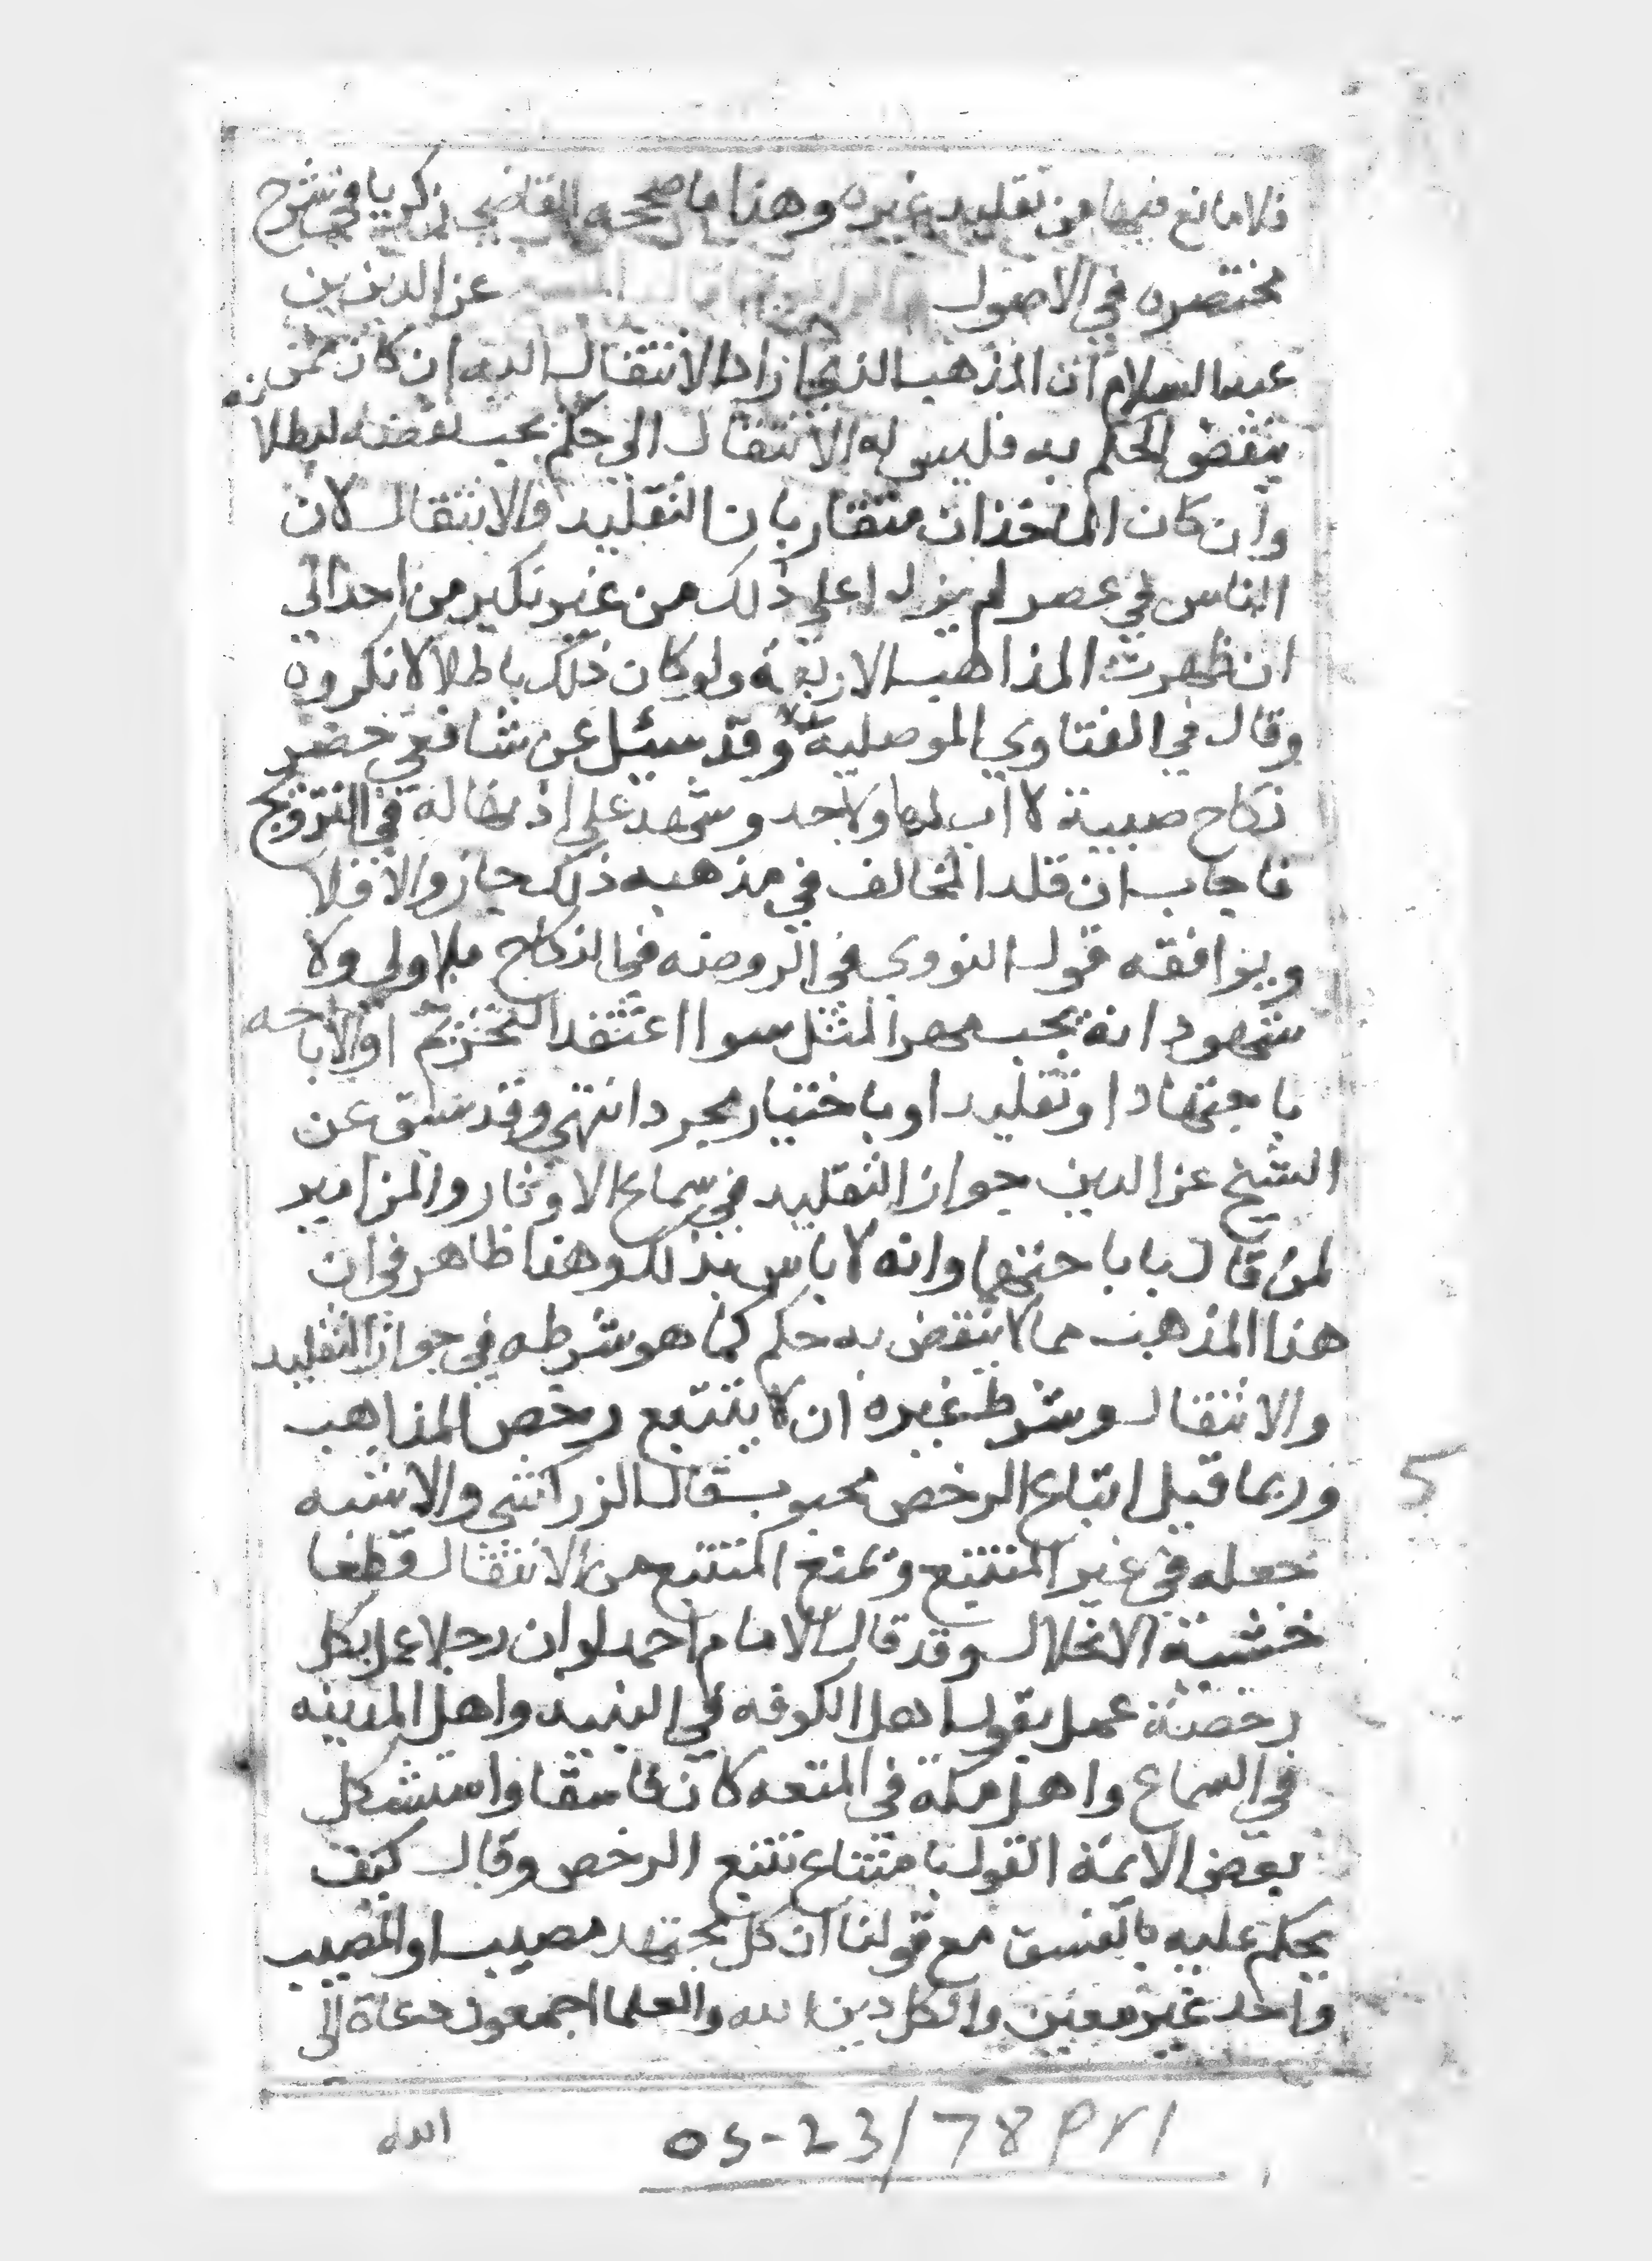 فلا مانع فيها من تقليد غيره وهذا ما صححه القاضي زكريا في شرح
مختصره في الاصول عز الدين بن
عبد السلام ان المذهب الذي اراد الانتقال اليه ان كان ممن
ينقض الحكم به فليس له الانتقال الى حكم يجب نقضه لبطلا نه
وان كان الماخذان متقاربان التقليد والانتقال لان
الناس في عصر لم يزلوا على ذلك من غير نكير من احد الى
ان ظهرت المذاهب الاربعة ولو كان ذلك باطلا لانكروه
وقال في الفتاوي الموصلية وقد سئل عن شافعي حضر
نكاح صبية لا اب لها ولا جد وشهد على اذنها له في التزويج
فاجاب ان قلد المخالف في مذهبه ذلك جاز والا فلا
ويوافقه قول النووي في الروضه في النكاح بلا ولي ولا
شهود انه يجب مهر المثل سوا اعتقد التحريم او الاباحه
باجتهاد او تقليد او باختيار مجرد انتهى وقد سبق عن
الشيخ عز الدين جواز التقليد في سماع الاوتار والمزامير
لمن قال باباحتها وانه لا باس بذلك وهذا ظاهر في ان
هذا المذهب مما لا ينقض به حكم كما هو شرطه في جواز التقليد
والانتقال وشرط غيره ان لا يتتبع رخص المذاهب
وربما قيل اتباع الرخص محبوب قال الزركشي والاشبه
جعله في غير المتتبع ويمنع المتتبع من الانتقال قطعا
خشية الانحلال وقد قال الامام احمد لو ان رجلا عمل بكل
رخصة عمل بقول اهل الكوفه في النبيد واهل المدينه
في السماع واهل مكة في المتعه كان فاسقا واستشكل
بعض الائمة القول بامتناع تتبع الرخص وقال كيف
يحكم عليه بالفسق مع قولنا ان كل مجتهد مصيب او المصيب
واحد غير معين والكل دين الله والعلما اجمعون دعاة الى
الله
05-23/78 ٩٢١
5